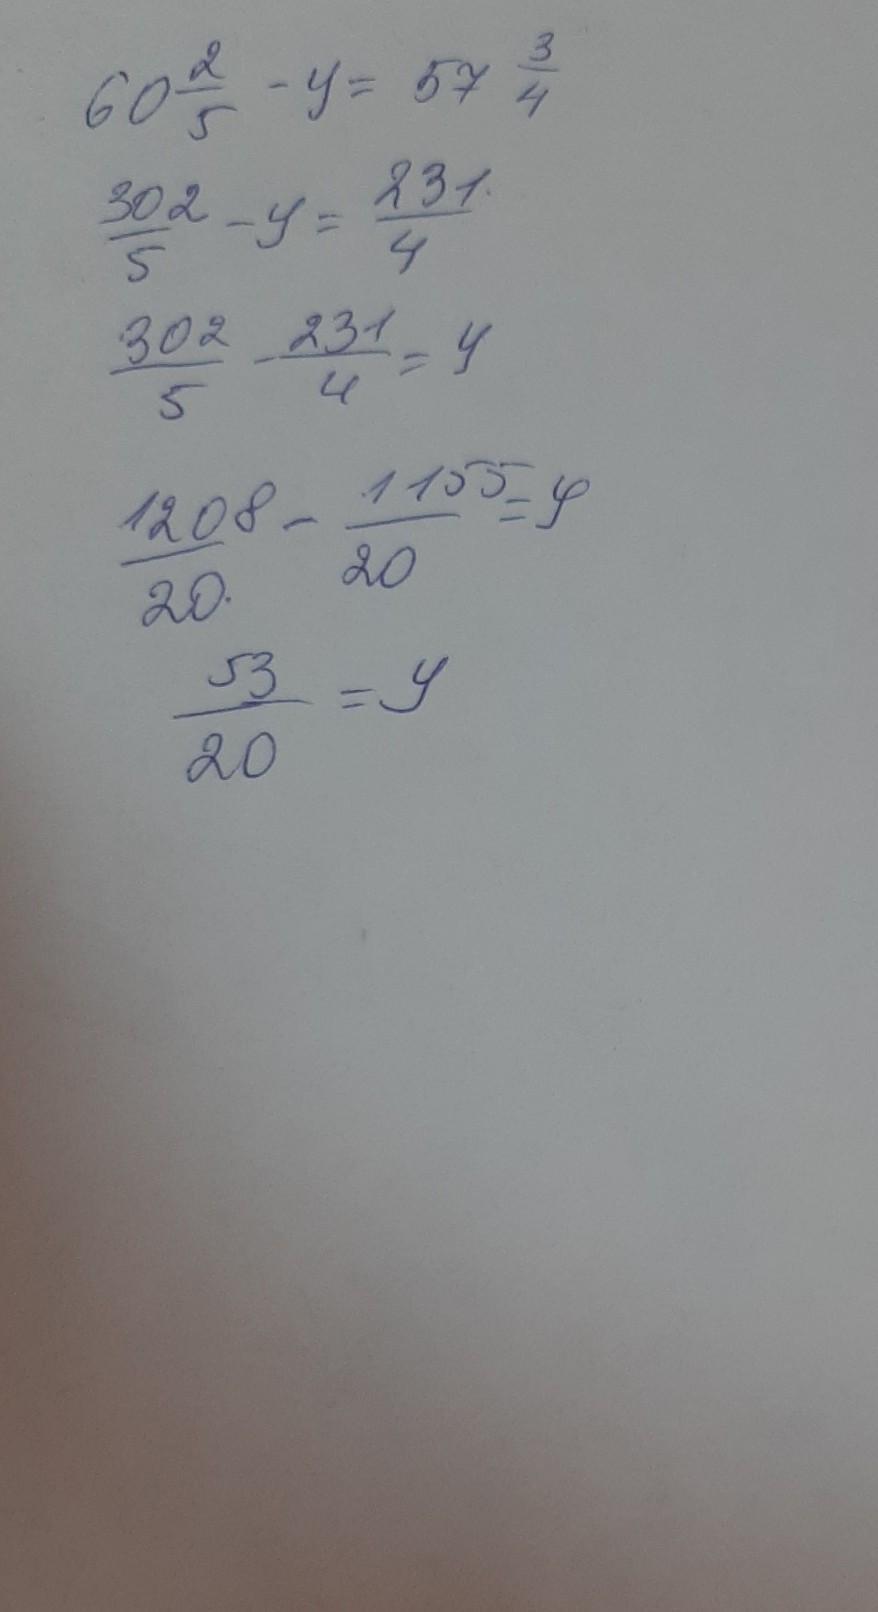 60 2/5 - y = 57 3/4
302/5 - y = 231/4
302/5 - 231/4 = y
1208/20 - 1155/20 = y
53/20 = y